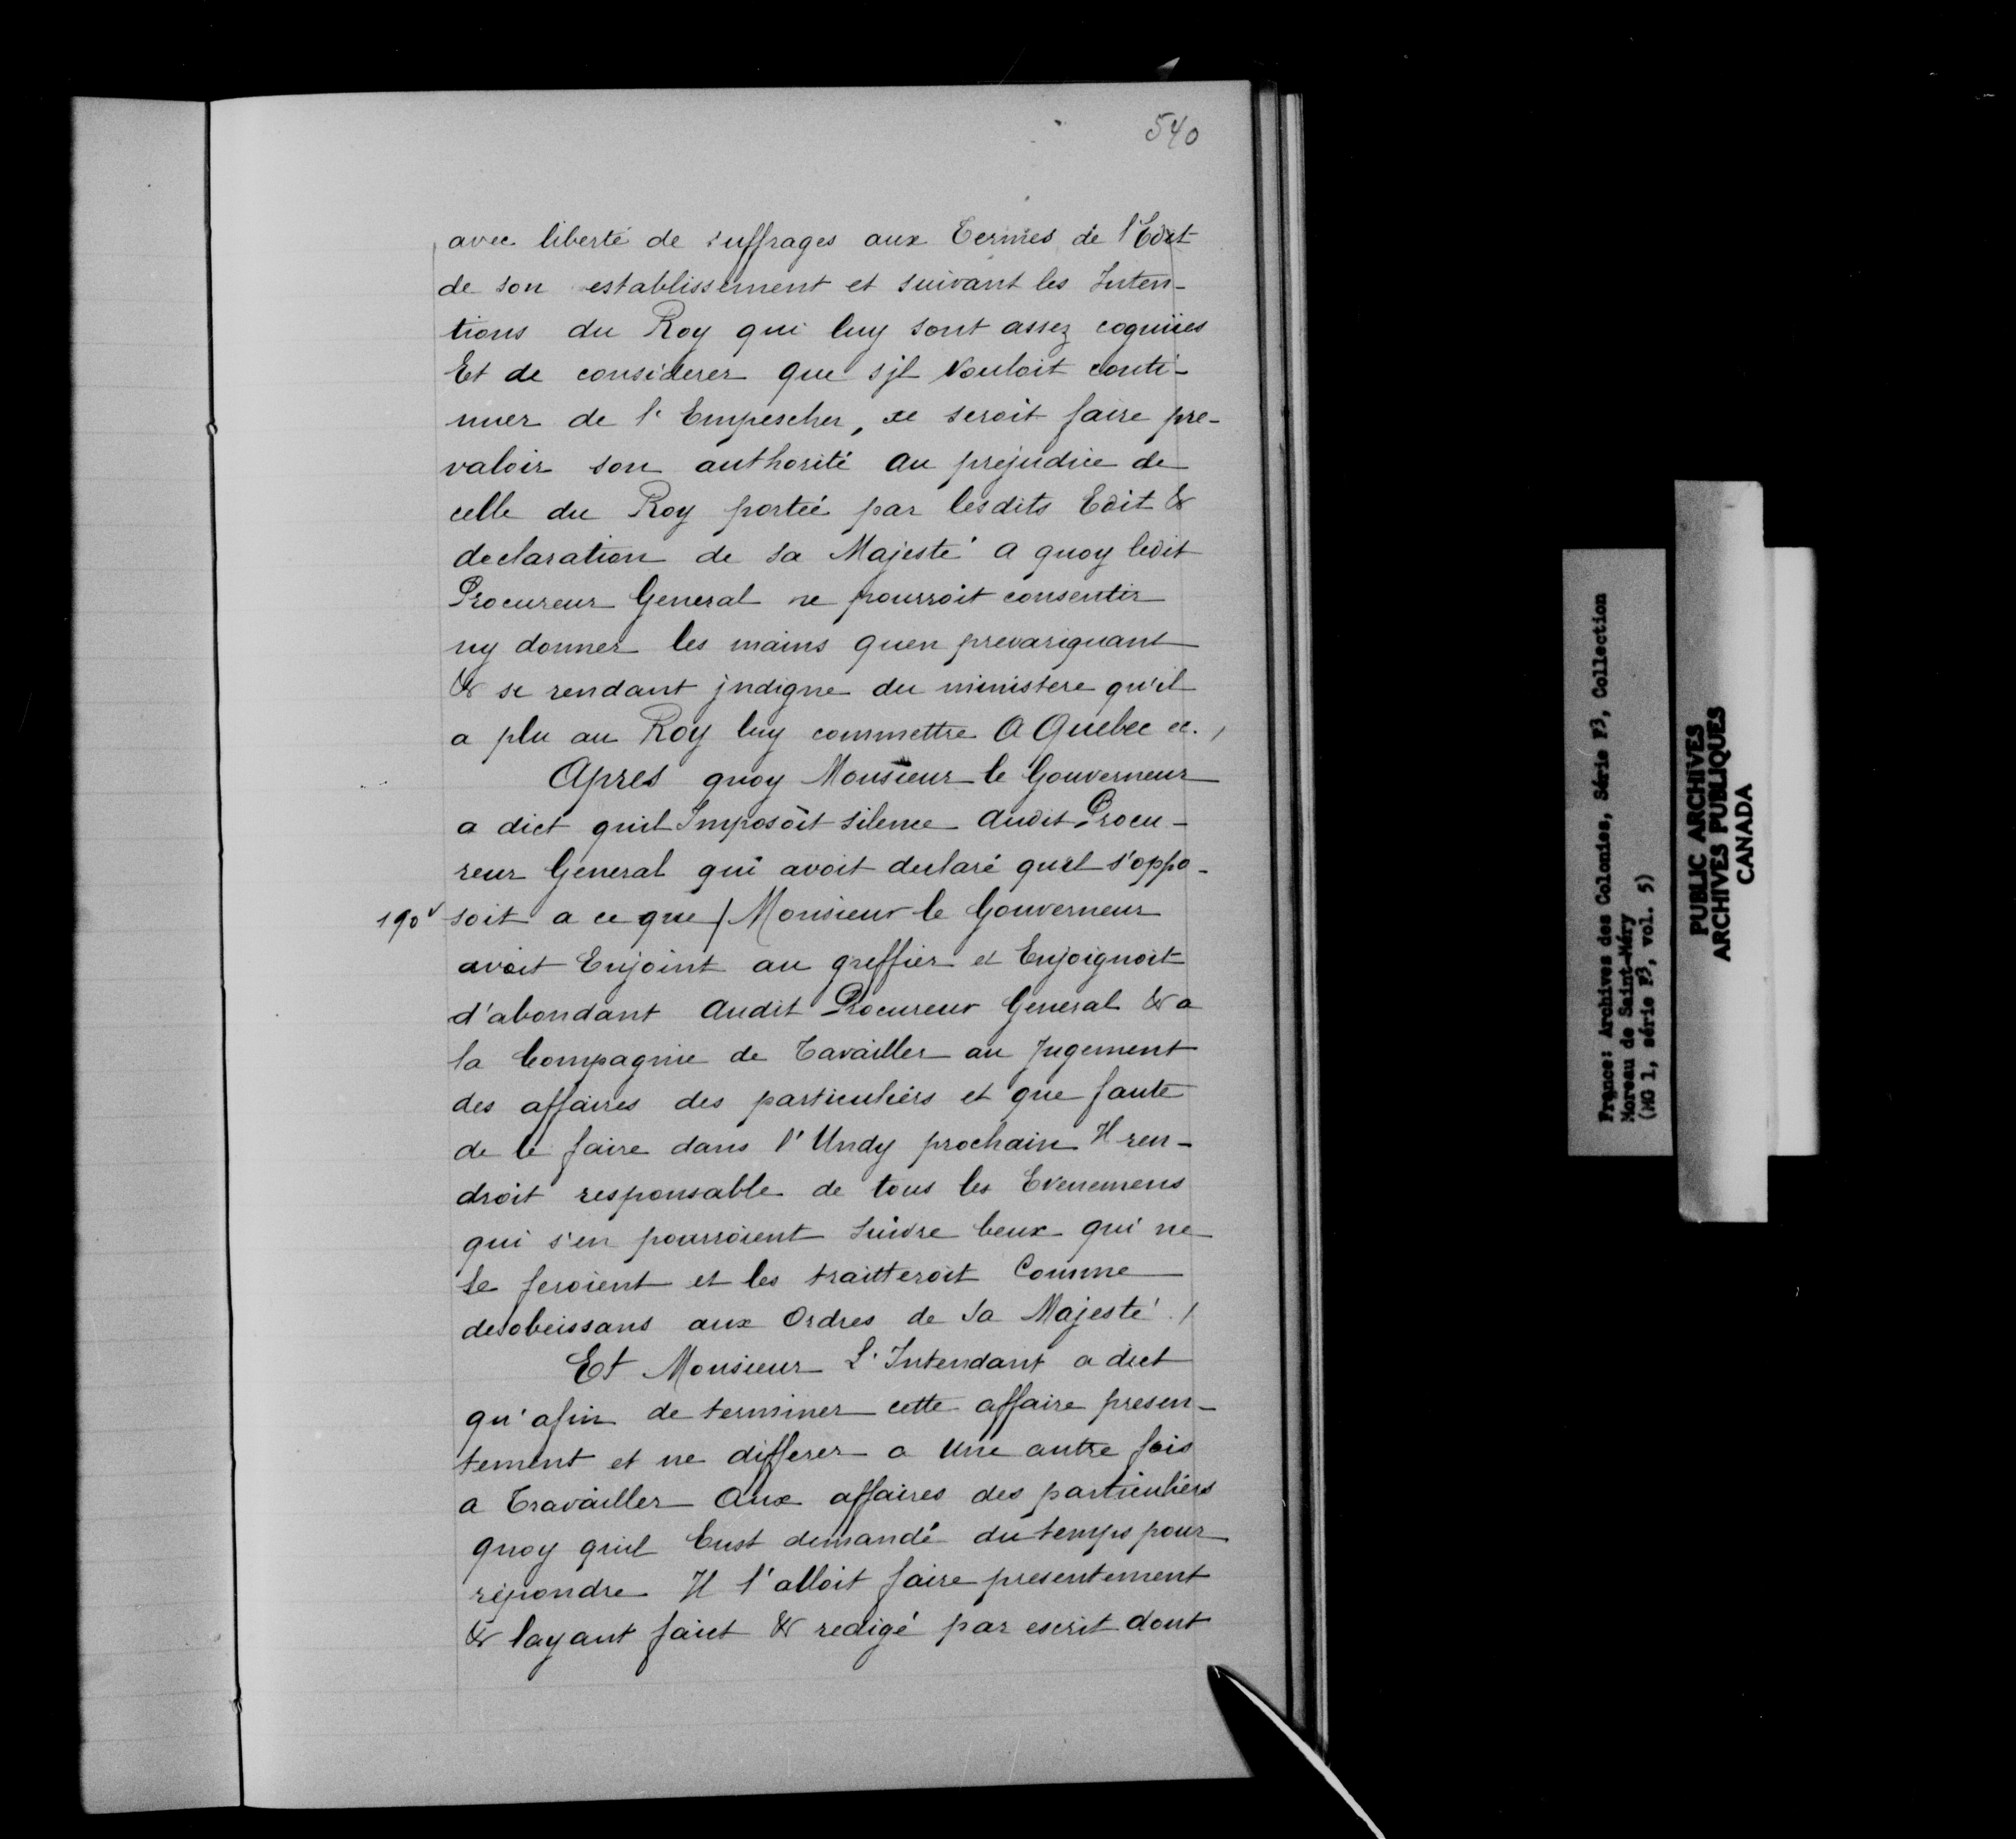 540
avec liberté de suffrages aux Termes de l'Edit
de son establissement et suivant les Inten-
tions du Roy qui luy sont assez cognües
Et de considerer que sjl Vouloit conti-
nuer de l'Empescher, ce seroit faire pre-
valoir son authorité au prejudice de
celle du Roy portée par lesdits Edit &
declaration de sa Majesté a quoy ledit
Procureur General ne pourroit consentir
ny donner les mains quen prevariquant
& se rendant jndigne du ministere qu'il
a plu au Roy luy commettre A Quebec ce. /
Apres quoy Monsieur le Gouverneur
a dict quil Imposoit silence audit Procu-
reur General qui avoit declaré quil s'oppo-
190v soit a ce que / Monsieur le Gouverneur
avoit Enjoint au greffier et Enjoignoit
d'abondant audit Procureur General & a
la Compagnie de Tavailler au Jugement
des affaires des particuliers et que faute
de le faire dans l'Undy prochain Il ren-
droit responsable de tous les Evenemens
qui s'en pourroient suivre Ceux qui ne
le feroient et les traitteroit Comme
desobeissans aux Ordres de sa Majesté. /
Et Monsieur L'Intendant a dict
qu'afin de terminer cette affaire presen-
tement et ne differer a Une autre fois
a Travailler Aux affaires des particuliers
quoy quil Eust demandé du temps pour
répondre Il l'alloit faire presentement
& layant faict & redigé par escrit dont
France: Archives des Colonies, Série F3, Collection
Moreau de Saint-Méry
(MG 1, série F3, vol. 5)
PUBLIC ARCHIVES
ARCHIVES PUBLIQUES
CANADA